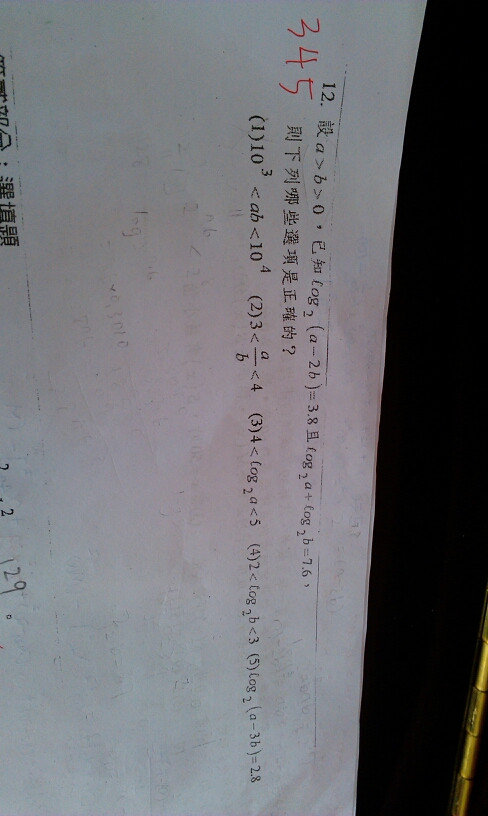 345
12. 設 a > b > 0，已知 log₂ (a－2b)＝3.8 且 log₂a＋log₂b＝7.6，
則下列哪些選項是正確的？
(1)10³ < ab < 10⁴ (2)3 < a/b < 4 (3)4 < log₂a < 5 (4)2 < log₂b < 3 (5)log₂(a－3b)＝2.8
：選填題
129。